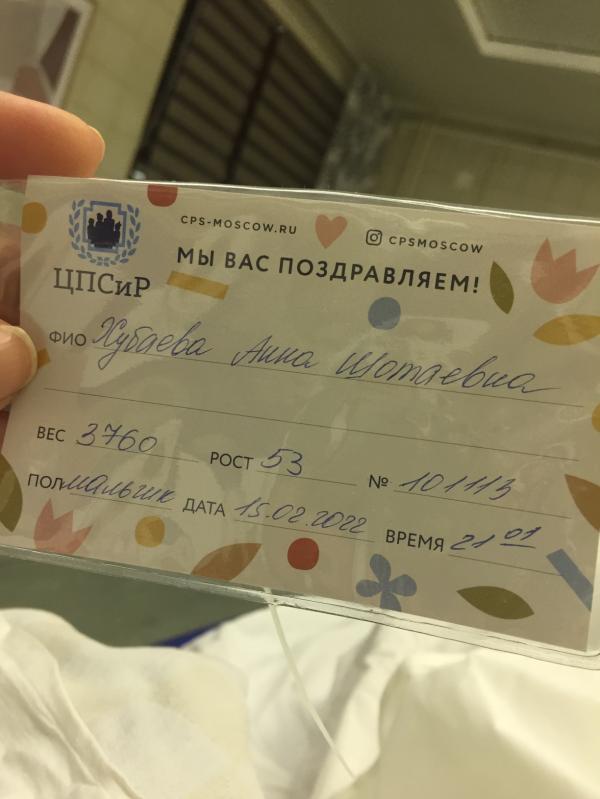 CPS-MOSCOW.RU
CPSMOSCOW
ЦПСиР
МЫ ВАС ПОЗДРАВЛЯЕМ!
ФИО Хубаева Анна Шотаевна
ВЕС 3760 РОСТ 53 № 101113
ПОЛ мальчик ДАТА 15.02.2022 ВРЕМЯ 21 01